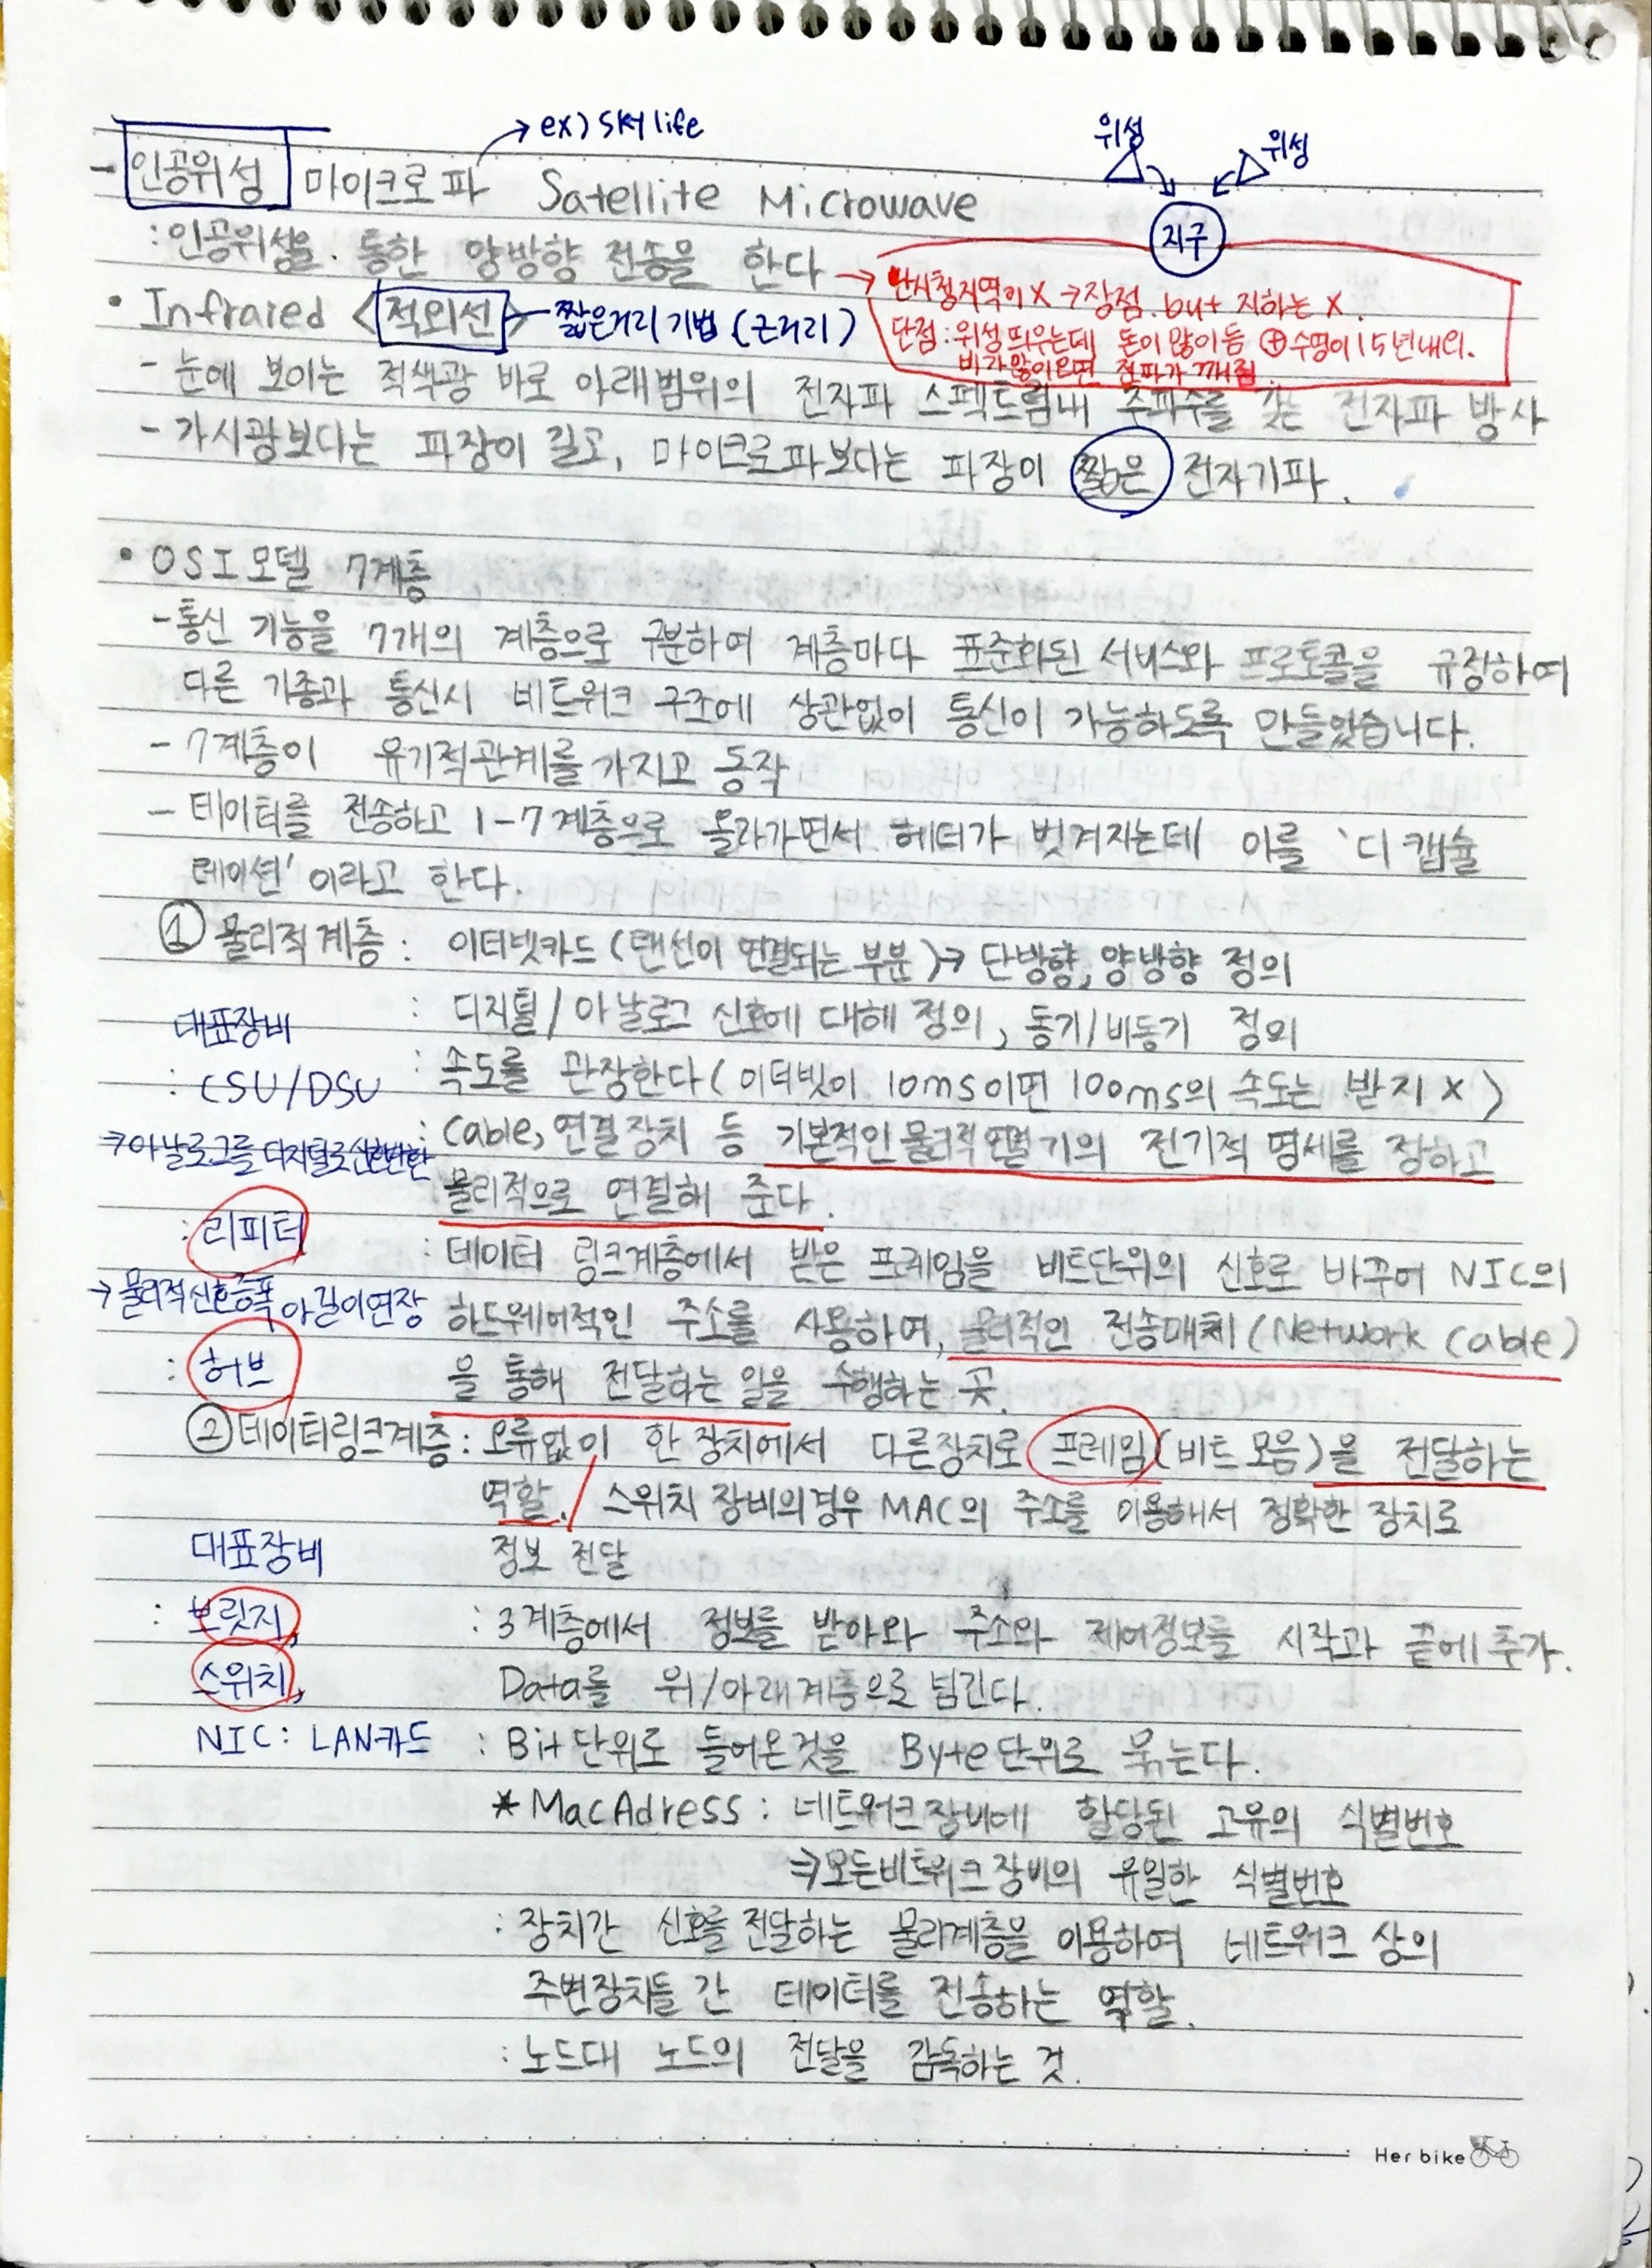 ex) sky life
위성
위성
지구
- 인공위성 마이크로파 Satellite Microwave
: 인공위성을 통한 양방향 전송을 한다
→ 난시청지역이 X → 장점. but 지하는 X.
단점 : 위성 띄우는데 돈이 많이 듬 ⊕ 수명이 15년내외.
비가많이오면 전파가 깨짐
• Infrared <적외선> - 짧은거리 기법 (근거리)
- 눈에 보이는 적색광 바로 아래범위의 전자파 스펙트럼내 주파수를 갖는 전자파 방사
- 가시광보다는 파장이 길고, 마이크로파보다는 파장이 짧은 전자기파.
• OSI 모델 7계층
- 통신 기능을 7개의 계층으로 구분하여 계층마다 표준화된 서비스와 프로토콜을 규정하여
다른 기종과 통신시 네트워크 구조에 상관없이 통신이 가능하도록 만들었습니다.
- 7계층이 유기적관계를 가지고 동작
- 데이터를 전송하고 1-7계층으로 올라가면서 헤더가 벗겨지는데 이를 '디캡슐
레이션' 이라고 한다.
① 물리적계층 : 이더넷카드 (랜선이 연결되는 부분) → 단방향, 양방향 정의
: 디지털/아날로그 신호에 대해 정의, 동기/비동기 정의
대표장비
: 속도를 관장한다 (이더넷이 10ms이면 100ms의 속도는 받지 X)
: CSU/DSU
: cable, 연결장치 등 기본적인 물리적연결기의 전기적 명세를 정하고
⇒ 아날로그를 디지털로 신호변환
물리적으로 연결해 준다.
: 리피터
: 데이터 링크계층에서 받은 프레임을 비트단위의 신호로 바꾸어 NIC의
→ 물리적신호증폭
아 길이연장
하드웨어적인 주소를 사용하여, 물리적인 전송매체 (Network Cable)
: 허브
을 통해 전달하는 일을 수행하는 곳.
② 데이터링크계층 : 오류없이 한 장치에서 다른장치로 프레임(비트 모음)을 전달하는
역할. / 스위치 장비의경우 MAC의 주소를 이용해서 정확한 장치로
대표장비
정보 전달
: 브릿지,
: 3계층에서 정보를 받아와 주소와 제어정보를 시작과 끝에 추가.
스위치,
Data를 위/아래계층으로 넘긴다.
NIC : LAN카드
: Bit단위로 들어온것을 Byte단위로 묶는다.
* MacAdress : 네트워크장비에 할당된 고유의 식별번호
⇒ 모든네트워크장비의 유일한 식별번호
: 장치간 신호를 전달하는 물리계층을 이용하여 네트워크 상의
주변장치들 간 데이터를 전송하는 역할.
: 노드대 노드의 전달을 감독하는 것.
Her bike